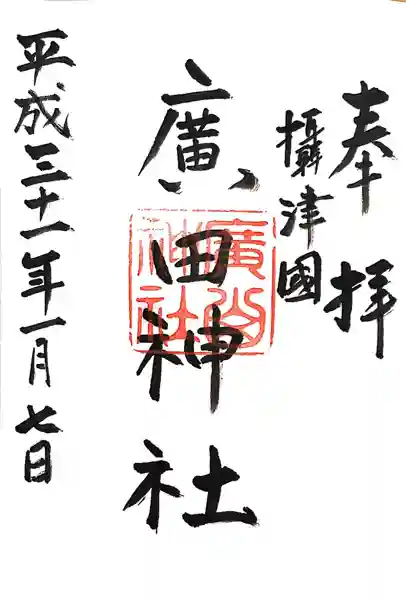 奉拝
攝津國
廣田神社
平成三十一年一月七日